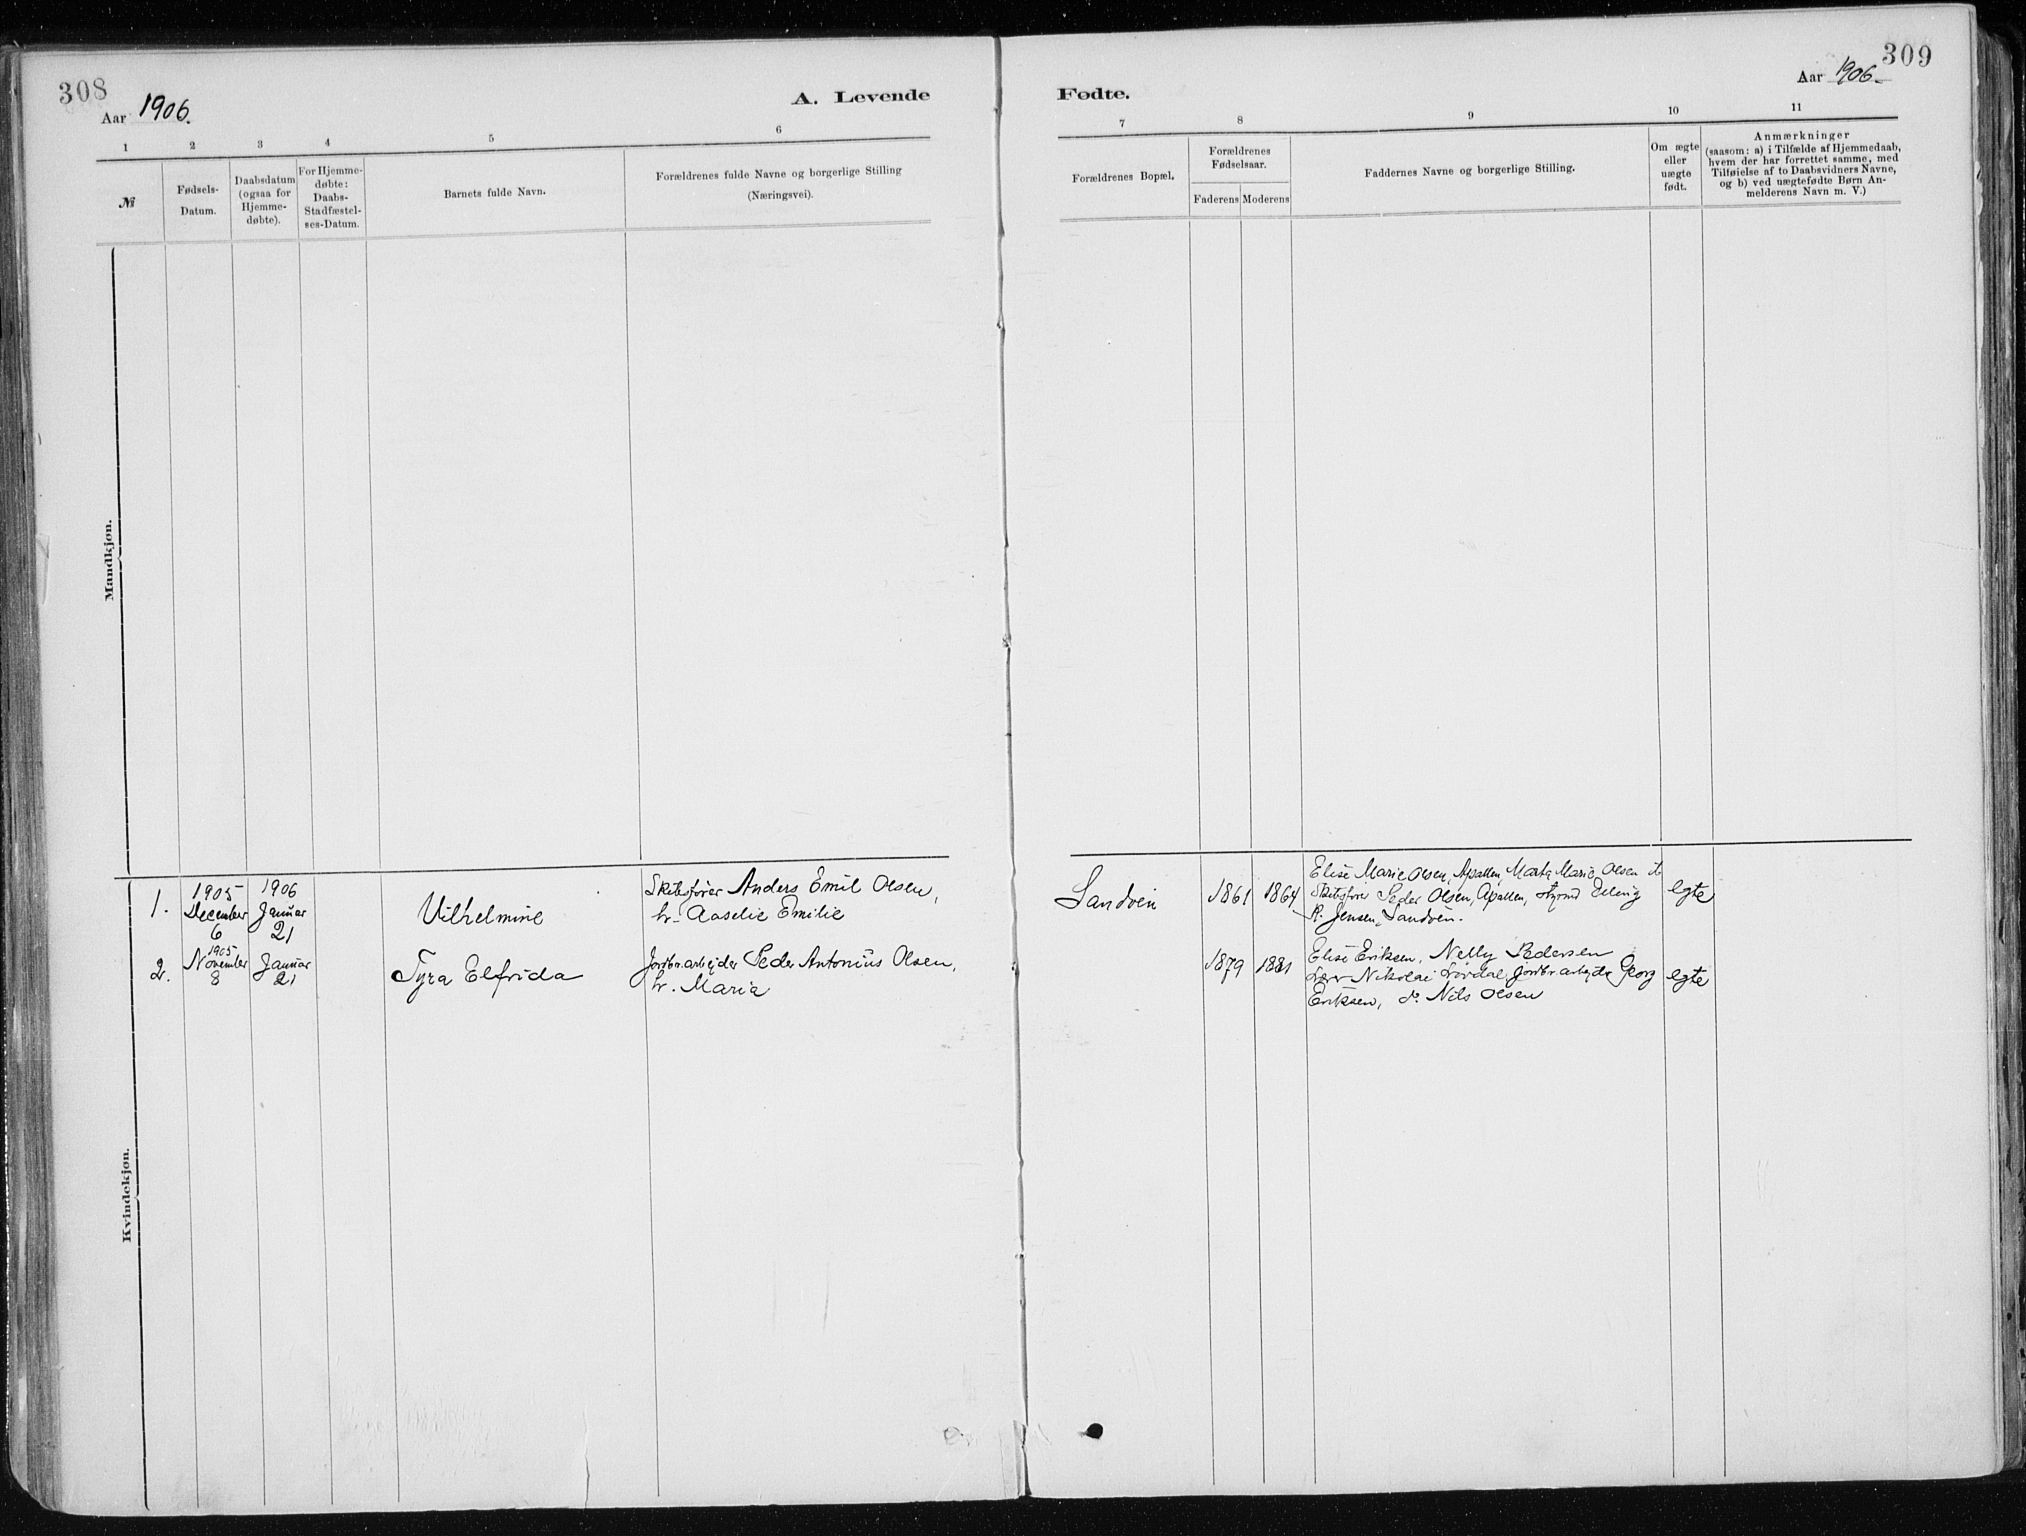 308
Aar 1906.
A. Levende
1 2 3 4 5 6
№
Fødsels-
Datum.
Daabsdatum
(ogsaa for
Hjemme-
døbte).
For Hjemme-
døbte:
Daabs-
Stadfæstel-
ses-Datum.
Barnets fulde Navn.
Forældrenes fulde Navne og borgerlige Stilling
(Næringsvei).
Mandkjøn.
Kvindekjøn.
1.
1905
December
6
1906
Januar
21
Vilhelmine
Skibsfører Anders Emil Olsen,
h. Aaselie Emilie
2.
1905
November
8
Januar
21
Tyra Elfrida
Jordbr.arbejder Peder Antonius Olsen,
h. Maria
309
Aar 1906.
Fødte.
7 8 9 10 11
Forældrenes Bopæl.
Forældrenes
Fødselsaar.
Faderens Moderens
Faddernes Navne og borgerlige Stilling.
Om ægte
eller
uægte
født.
Anmærkninger
(saasom: a) i Tilfælde af Hjemmedaab,
hvem der har forrettet samme, med
Tilføielse af to Daabsvidners Navne,
og b) ved uægtefødte Børn An-
melderens Navn m. V.)
Sandven
1861
1864
Elise Marie Olsen, Apallen, Marta Marie Olsen
Skibsfører Peder Olsen, Apallen, Styrmd
Jensen, Sandven.
egte
1879
1881
Elise Eriksen, Nelly Pedersen
Nikolai Lövdal, Jordbr.arbejder Georg
Eriksen, do Nils Olsen
egte